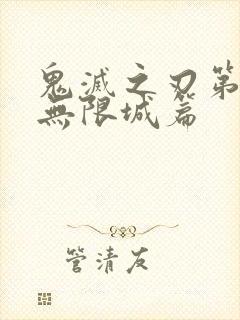 鬼滅之刃第
無限城篇
管清友